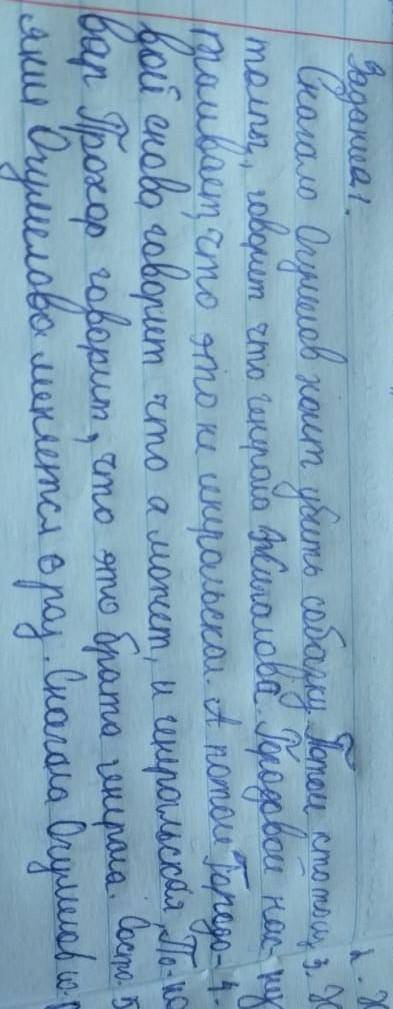 Задание 1.
Сначало Очумелов хочит убить собаку. Потом кто то из
толпы, говорит что генерала Жигалова. Городовой нас
таивает, что это не генральская. А потом Городо-
вой снова говорит что а может, и генральская. По-
вар Прохор говорит, что это брата генерала. Состо-
яния Очумелова меняется 6 раз. Сначала Очумелов